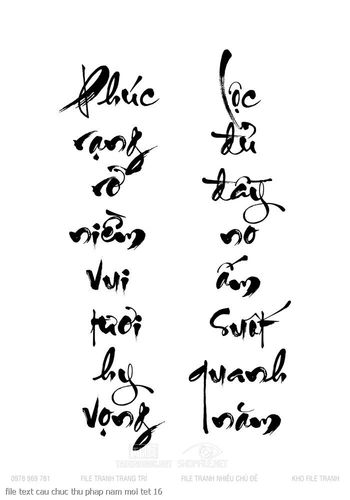 Phúc
rạng
rỡ
niềm
vui
tươi
hy
vọng
Lộc
đủ
đầy
no
ấm
suốt
quanh
năm
SHOPFILE.NET
0978 969 761
FILE TRANH TRANG TRÍ
FILE TRANH NHIỀU CHỦ ĐỀ
KHO FILE TRANH
file text cau chuc thu phap nam moi tet 16